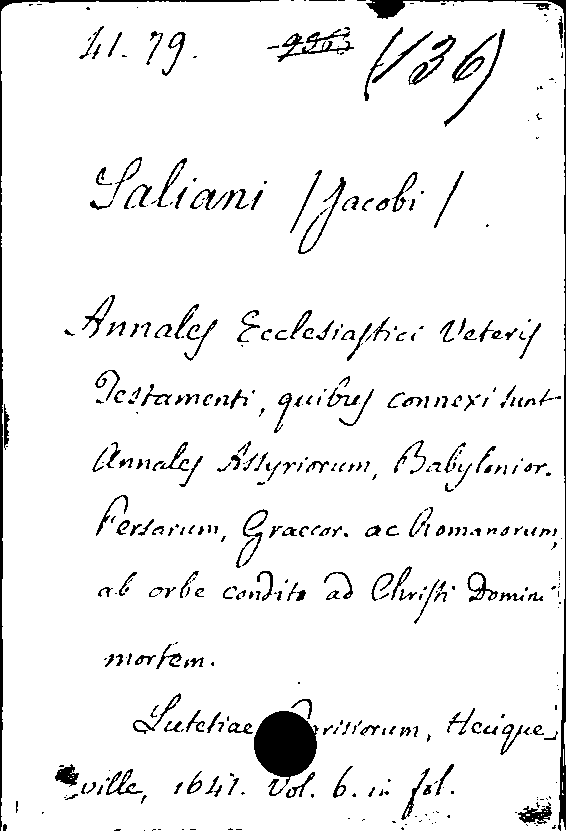 41. 79. 936 (136)
Saliani /Jacobi/
Annales Ecclesiastici Veteris
Testamenti, quibus connexi sunt
Annales Assyriorum, Babylonior.
Persarum, Graecor. ac Romanorum,
ab orbe condito ad Christi Domini
mortem.
Lutetiae Parisiorum, Heuque-
ville, 1641. Vol. 6. in fol.